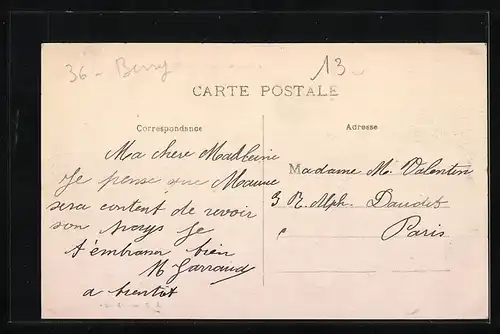 36 - Berry
13
CARTE POSTALE
Correspondance
Ma chere Madleine
Je pense que Maurice
sera content de revoir
son pays Je
t'embrasse bien
M Garraud
a bientôt
Adresse
Madame M. Valentin
3 R. Alph. Daudet
Paris